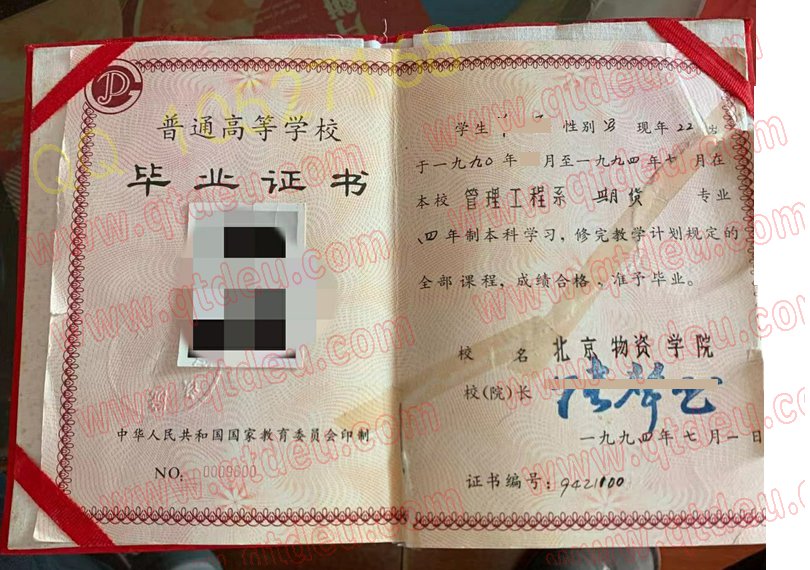 普通高等学校
毕业证书
中华人民共和国国家教育委员会印制
NO: 0009600
学生 性别 男 现年 22 岁
于一九九〇年 月至一九九四年七月在
本校 管理工程系 期货 专业
四年制本科学习，修完教学计划规定的
全部课程，成绩合格，准予毕业。
校 名 北京物资学院
校(院)长
一九九四年七月一日
证书编号：9421100
QQ
www.qtdeu.com
www.qtdeu.com
www.qtdeu.com
www.qtdeu.com
www.qtdeu.com
www.qtdeu.com